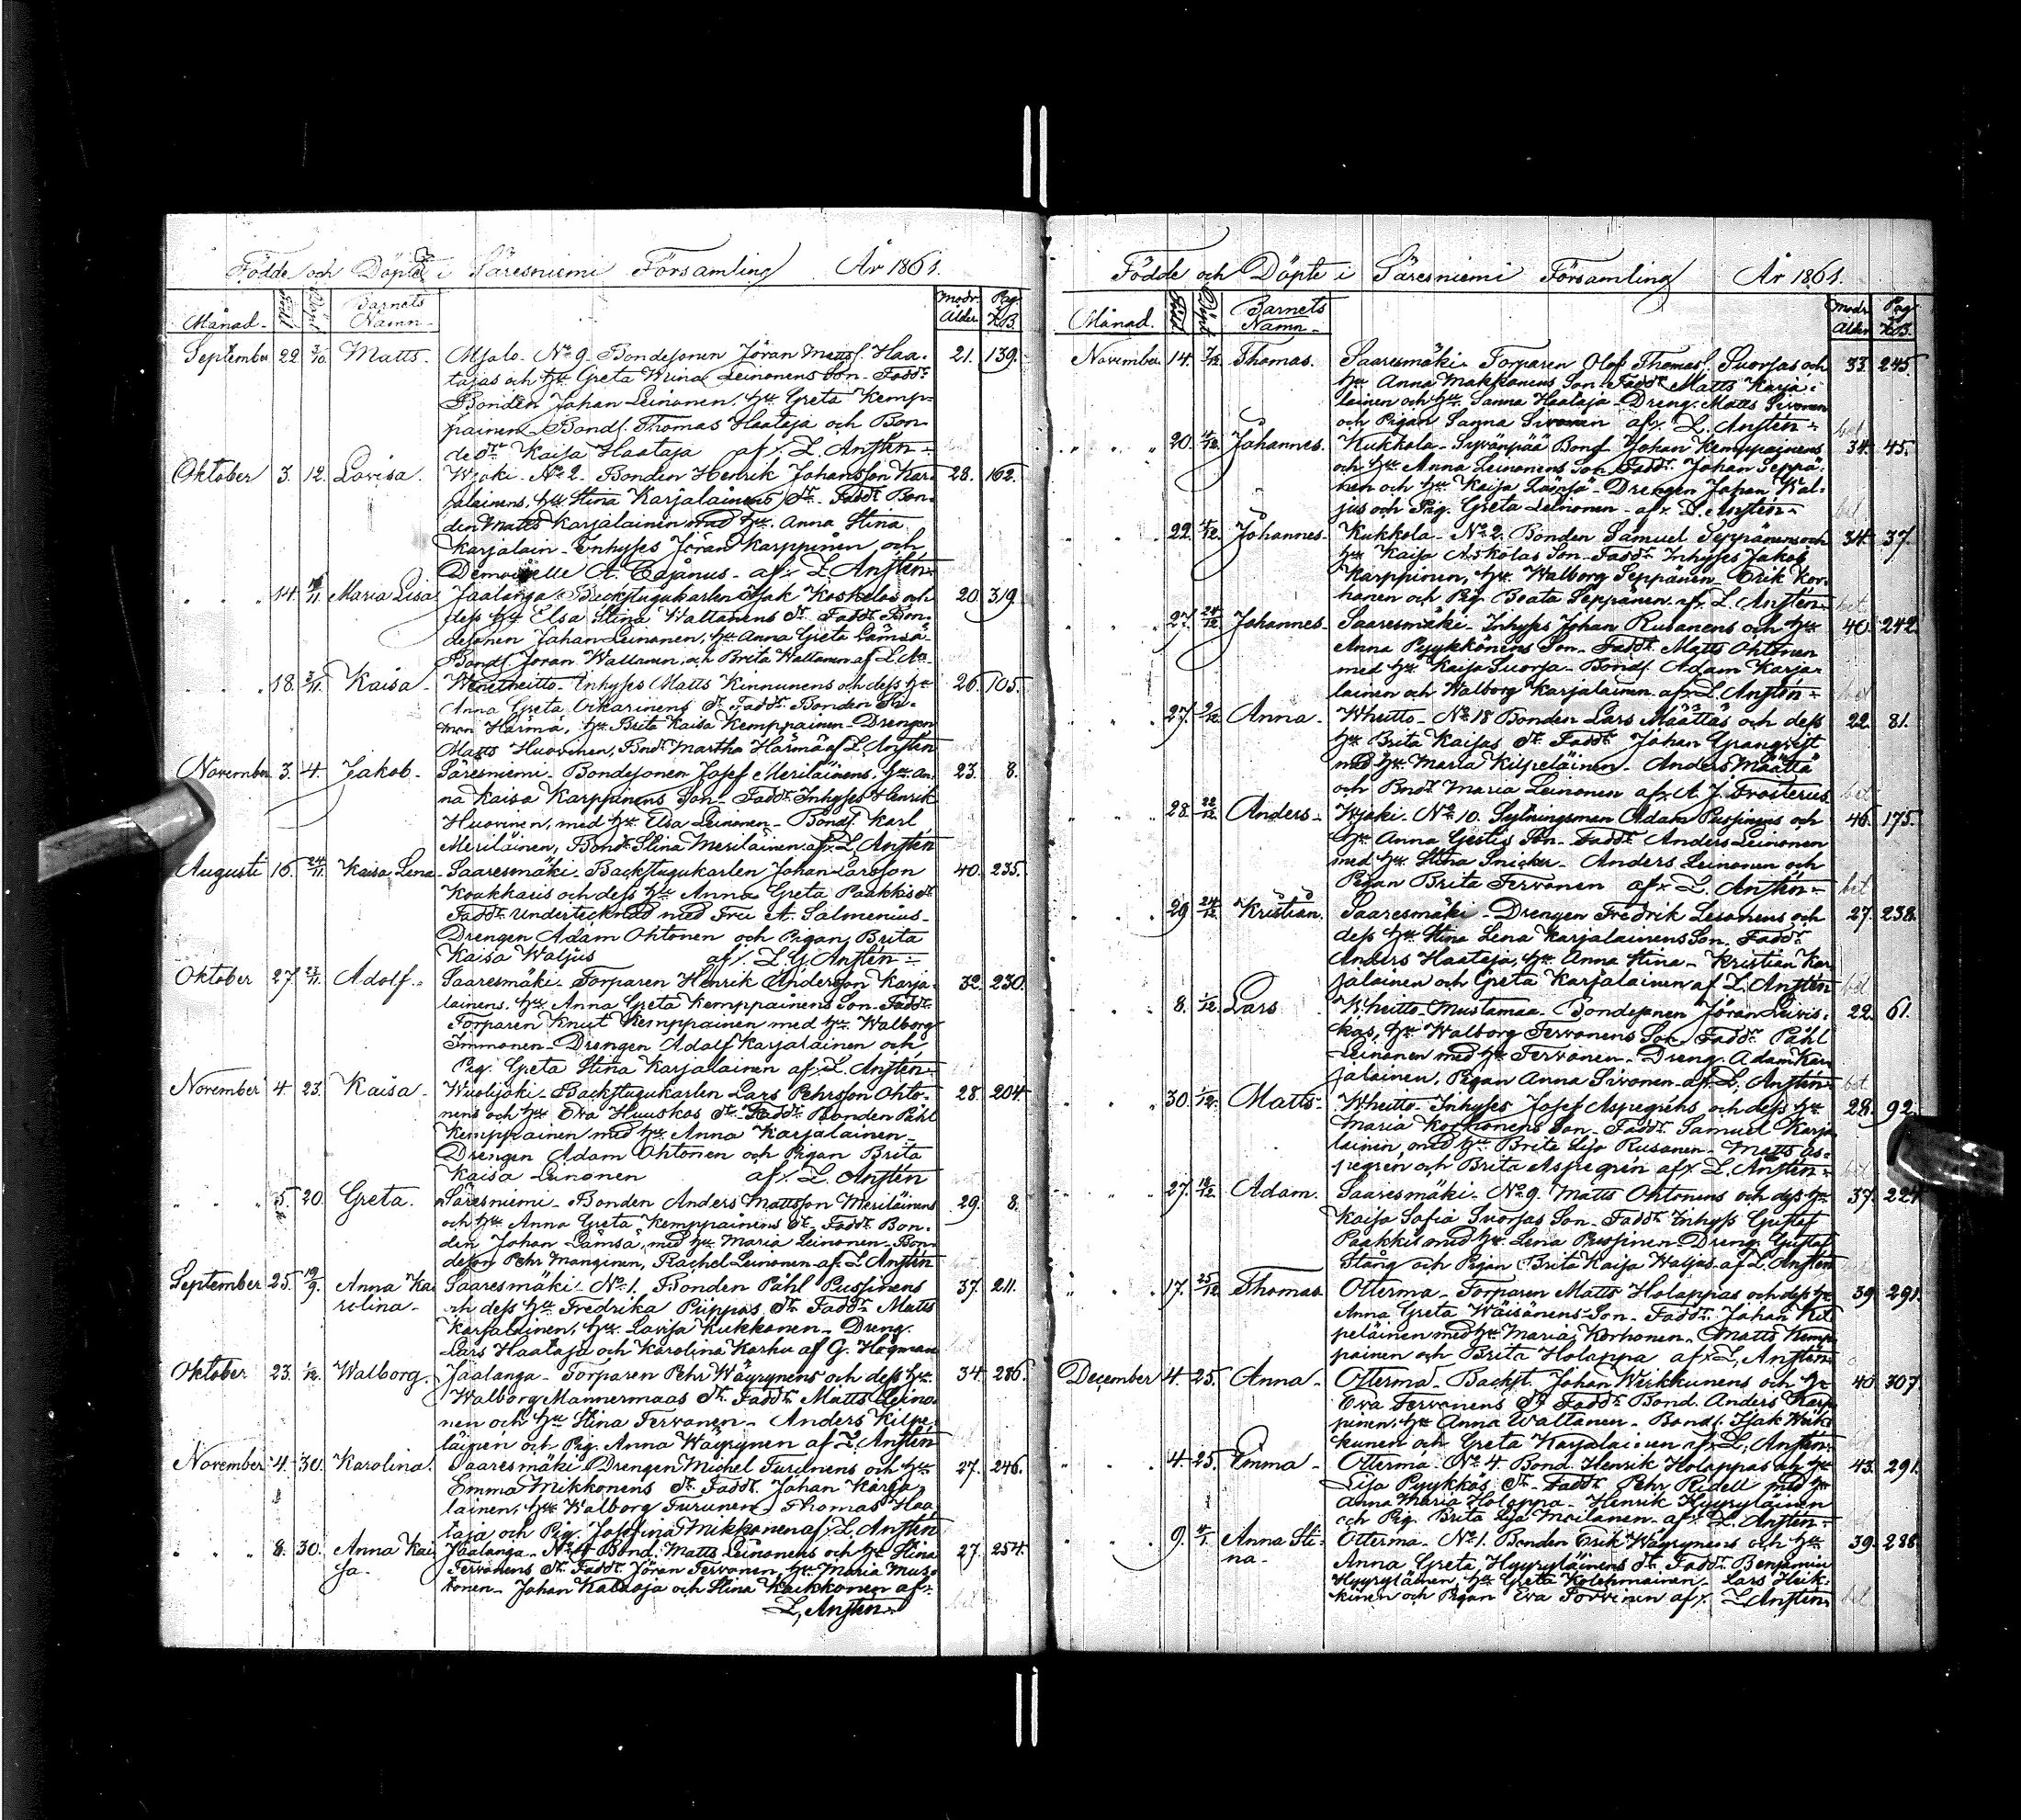 Födde och Döpte i Säresniemi Församling År 1861.
Månad. Född Döpt Barnets Namn Modr. Ålder Pag. K.B.
September 29. 3/10. Matts. Mjalo. No 9. Bondesonen Jöran Mattss. Haa- 21. 139.
tajas och hu Greta Leinonens Son. Faddr
Bonden Johan Leinonen, hu Greta Kemp-
painen. Bonds. Thomas Haataja och Bon-
dedr Kaisa Haataja af L. Ansten
Oktober 3. 12. Lovisa. Wjoki. No 2. Bonden Henrik Johansson Kar- 28. 162.
jalainens, hu Stina Karjalainens dr. Faddr Bon-
den Matts Karjalainen med hu Anna Stina
Karjalain- Inhyses Jöran Karppinen och
Demoiselle A. Cajanus. af L. Ansten
" " 14. Maria Lisa Jaalanga Backstugukarlen Isak Koskelos och 20. 319.
dess hu Elsa Stina Waltanens dr. Faddr Bon-
desonen Johan Leinonen, hu Anna Greta Lämsä
Bonds. Jöran Waltanen, och Brita Waltanen af L. An-
" " 18. 3/11. Kaisa. Wenetheitto. Inhyses Matts Kinnunens och dess hu 26. 105.
Anna Greta Oikarinens dr Faddr Bonden Si-
mon Härmä, hu Brita Kaisa Kemppainen. Drengen
Matts Huovinen, Bndr Martha Härmä af L. Ansten
November 3. 4. Jakob. Säresniemi. Bondesonen Josef Meriläinens, hu An- 23. 8.
na Kaisa Karppinens Son. Faddr Inhyses Henrik
Huovinen, med hu Elsa Leinonen. Bonds. Karl
Meriläinen, Bondr Stina Meriläinen af L. Ansten
Augusti 16. 24/11. Kaisa Lena Saaresmäki. Backstugukarlen Johan Larsson 40. 235.
Koukkaris och dess hu Anna Greta Paakkis dr
Faddr undertecknad med Fru A. Salmenius.
Drengen Adam Ohtonen och Pigan Brita
Kaisa Waljus af L. G. Ansten
Oktober 27. Adolf. Saaresmäki. Torparen Henrik Andersson Karja- 32. 230.
lainens, hu Anna Greta Kemppainens Son. Faddr
Torparen Knut Kemppainen med hu Walborg
Immonen. Drengen Adolf Karjalainen och
Pig. Greta Stina Karjalainen af L. Ansten
November 4. 23. Kaisa. Wuolijoki. Backstugukarlen Lars Pehrsson Ohto- 28. 204
nens och hu Eva Huuskos dr. Faddr Bonden Påhl
Kemppainen med hu Anna Karjalainen.
Drengen Adam Ohtonen och Pigan Brita
Kaisa Leinonen af L. Ansten
" " 5. 20. Greta. Säresniemi. Bonden Anders Mattsson Meriläinens 29. 8.
och hu Anna Greta Kemppainens dr. Faddr Bon-
den Johan Lämsä, med hu Maria Leinonen. Bon-
deson Pehr Manginen, Rachel Leinonen af L. Ansten
September 25. 19/9. Anna Ka- Saaresmäki. No 1. Bonden Påhl Pussinens 37. 211.
rolina. och dess hu Fredrika Piippos dr Faddr Matts
Karjalainen, hu Lovisa Kukkonen. Dreng.
Lars Haataja och Karolina Karhu af G. Högman
Oktober 23. 1/12. Walborg. Jaalanga. Torparen Pehr Wäyrynens och dess hu 34. 286.
Walborg Mannermaas dr. Faddr Matts Leino-
nen och hu Stina Tervonen. Anders Kilpe-
läinen och Pig. Anna Wäyrynen af L. Ansten
November 4. 30. Karolina. Saaresmäki Drengen Michel Turunens och hu 27. 246.
Emma Mikkonens dr. Faddr Johan Karja-
lainen, hu Walborg Turunen. Thomas Haa-
taja och Pig. Josefina Mikkonen af L. Ansten
" " 8. 30. Anna Kai- Jaalanga. Bond. Matts Leinonens och hu Stina 27. 254.
sa. Tervonens dr. Faddr Jöran Tervonen, hu Maria Mus-
tonen. Johan och Stina Kaikkonen af
L. Ansten
Födde och Döpte i Säresniemi Församling År 1861.
Månad. Född Döpt Barnets Namn Modr. Ålder Pag. K.B.
November 14. 7/12. Thomas. Saaresmäki. Torparen Olof Thomass. Suorsas och 33. 245.
hu Anna Makkonens Son. Faddr Matts Karja-
lainen och hu Sanna Haataja. Dreng. Matts Sivonen
och Pigan Sanna Sivonen af L. Ansten
" " 20. Johannes. Kukkola. Syvänpää Bond Johan Kemppainens 34. 45.
och hu Anna Leinonens Son. Faddr Johan Seppä-
nen och hu Kaisa Lämsä. Drengen Johan Wal-
jus och Pig. Greta Leinonen. af L. Ansten
" " 22. Johannes. Kukkola. No 2. Bonden Samuel Seppänens och 34. 37.
hu Kaisa Askolas Son. Faddr Inhyses Jakob
Karppinen, hu Walborg Seppänen. Erik Kor-
honen och Pig. Beata Seppänen. af L. Ansten
" " 27. 24/12. Johannes. Saaresmäki. Inhyses Johan Rusanens och hu 40. 242
Anna Pyykkönens Son. Faddr Matts Ohtonen
med hu Kaisa Suorsa. Bonds. Adam Karja-
lainen och Walborg Karjalainen af L. Ansten
" " 27. Anna. Wheitto. No 18 Bonden Lars Määttäs och dess 22. 81.
hu Brita Kaisas dr. Faddr Johan Granqvist
med hu Maria Kilpeläinen. Anders Määttä
och Bndr Maria Leinonen af A. J. Frosterus
" " 28. 22/12. Anders. Wjoki. No 10. Sytningsman Adam Pussinens och 46. 175.
hu Anna Gestis Son. Faddr Anders Leinonen
med hu Stina Snicker. Anders Leinonen och
Pigan Brita Tervonen af L. Ansten
" " 29. 24/12. Kristian. Saaresmäki. Drengen Fredrik Lesonens och 27. 238.
dess hu Stina Lena Karjalainens Son. Faddr
Anders Haataja, hu Anna Stina. Kristian Kar-
jalainen och Greta Karjalainen af L. Ansten
" " 8. 1/12. Lars Wheitto. Mustamaa. Bondesonen Jöran Leivis- 22. 61.
käs, hu Walborg Tervonens Son. Faddr Påhl
Leinonen med hu Tervonen. Dreng. Adam Kar-
jalainen, Pigan Anna Sivonen. af L. Ansten
" " 30. 1/12. Matts. Wheitto. Inhyses Josef Aspegréns och dess hu 28. 92.
Maria Korhonens Son. Faddr Samuel Karja-
lainen, med hu Brita Lisa Rusanen. Matts As-
pegrén och Brita Aspegrén af L. Ansten
" " 27. 18/12. Adam. Saaresmäki. No 9. Matts Ohtonens och dess hu 37. 224
Kaisa Sofia Suorsas Son. Faddr Inhyses Gustaf
Paakkis med hu Lena Pussinen. Dreng. Gustaf
Stång och Pigan Brita Kaisa Waljus. af L. Ansten
" " 17. 25/12. Thomas. Otterma. Torparen Matts Holappas och dess hu 39. 291.
Anna Greta Wäisänens Son. Faddr Johan Kil-
peläinen med hu Maria Korhonen. Matts Kemp-
painen och Brita Holappa af L. Ansten
December 4. 25. Anna. Otterma. Backst. Johan Weikkunens och hu 40. 307.
Eva Tervonens dr Faddr Bond. Anders Karp-
pinen, hu Anna Waltanen. Bonds. Isak Weik-
kunen och Greta Karjalainen af L. Ansten
" " 4. 25. Emma. Otterma. No 4. Bond. Henrik Holappas och hu 43. 291.
Lisa Pyykkös dr. Faddr Pehr Ridell med hu
Anna Maria Holappa. Henrik Hyyryläinen
och Pig. Brita Lisa Moilanen. af L. Ansten
" " 9. Anna Sti- Otterma. No 1. Bonden Erik Wäyrynens och hu 39. 288.
na. Anna Greta Hyyryläinens dr. Faddr Benjamin
Hyyryläinen, hu Greta Kolehmainen. Lars Heik-
kinen och Pigan Eva Torvinen af L. Ansten